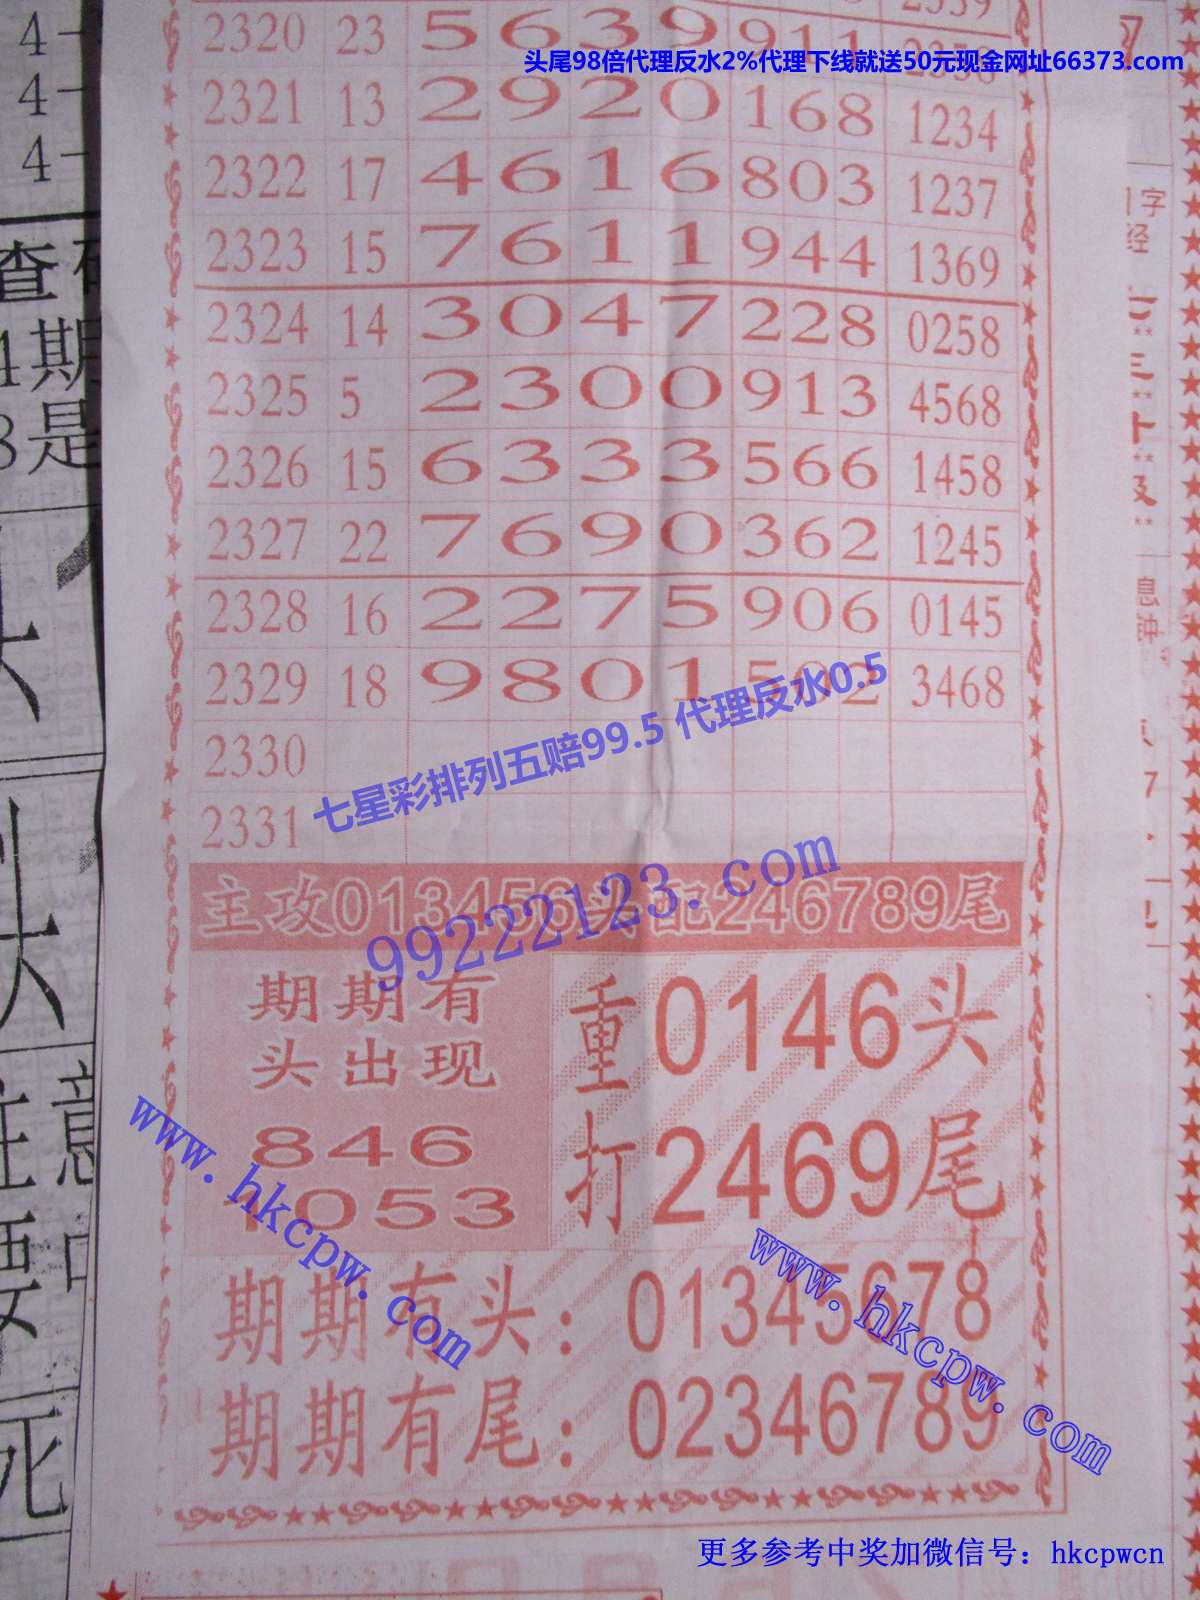 头尾98倍代理反水2%代理下线就送50元现金网址66373.com
2320 23 5639 911
2321 13 2920 168 1234
2322 17 4616 803 1237
2323 15 7611 944 1369
2324 14 3047 228 0258
2325 5 2300 913 4568
2326 15 6333 566 1458
2327 22 7690 362 1245
2328 16 2275 906 0145
2329 18 9801 502 3468
2330
2331
七星彩排列五赔99.5 代理反水0.5
99222123.com
主攻013456头配246789尾
期期有
头出现
846
1053
重0146头
打2469尾
期期有头：01345678
期期有尾：02346789
www.hkcpw.com
www.hkcpw.com
更多参考中奖加微信号：hkcpwcn
4
4
4
查
期
是
意
要
死
字
经
三
十
及
息
钟
7